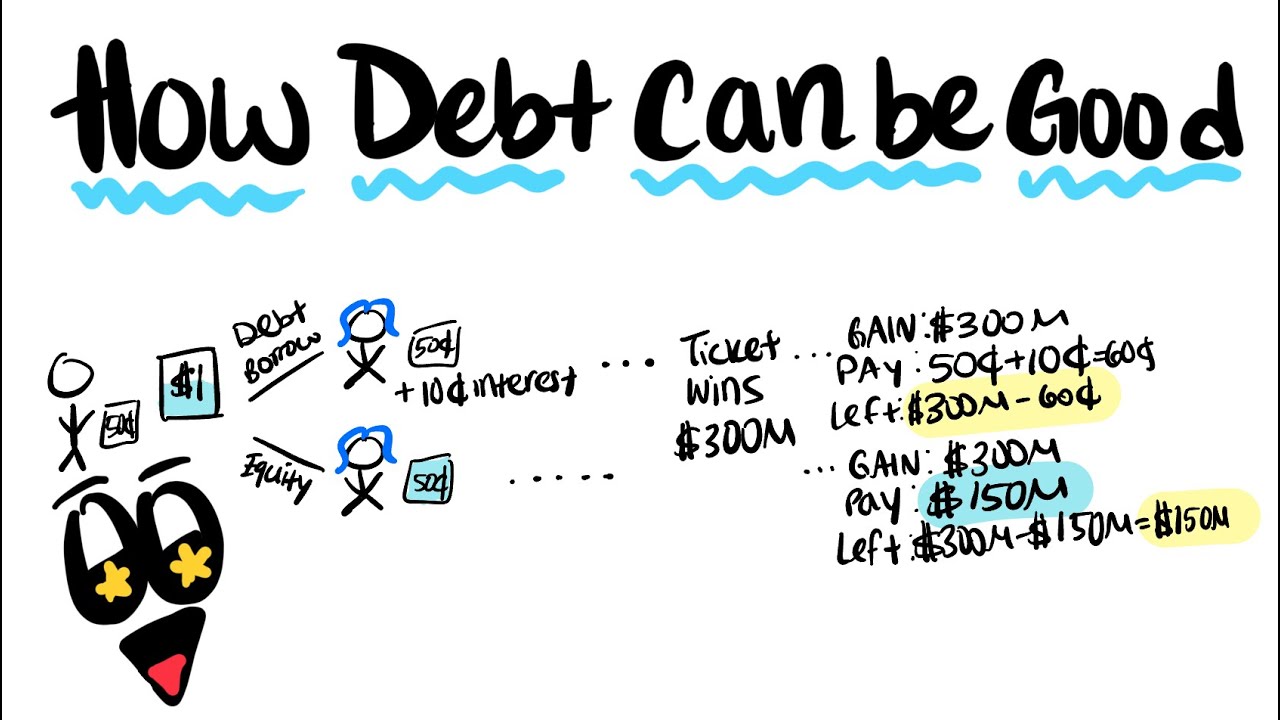 How Debt Can be Good
50¢
$1
Debt
Borrow
50¢
+ 10¢ interest
Equity
50¢
... Ticket ...
wins
$300M
GAIN: $300M
PAY: 50¢+10¢=60¢
Left: $300M - 60¢
...... 
... GAIN: $300M
Pay: $150M
Left: $300M-$150M=$150M